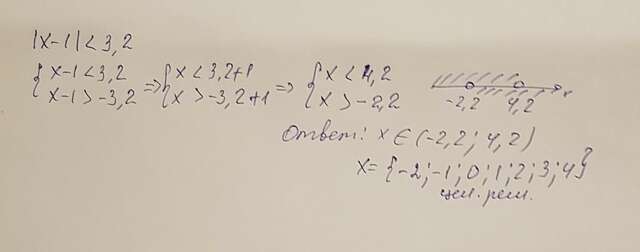 |x-1|<3,2
{x-1<3,2 x-1>-3,2 => {x<3,2+1 x>-3,2+1 => {x<4,2 x>-2,2
-2,2 4,2 x
Ответ: x∈(-2,2; 4,2)
x={-2;-1;0;1;2;3;4}
цел. реш.